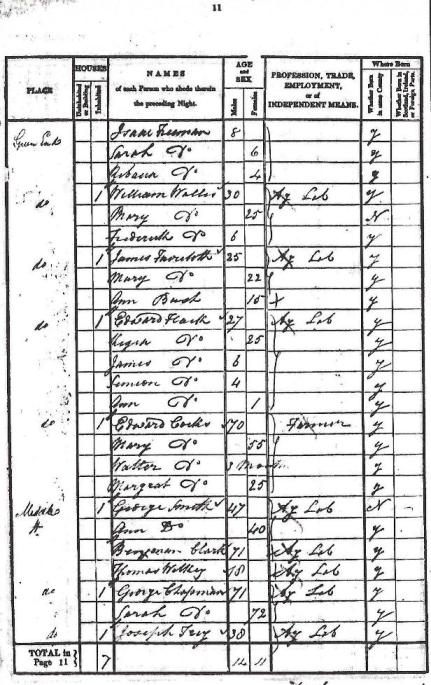 11
PLACE HOUSES Uninhabited or Building Inhabited NAMES of each Person who abode therein the preceding Night. AGE and SEX Males Females PROFESSION, TRADE, EMPLOYMENT, or of INDEPENDENT MEANS. Where Born Whether Born in same County Whether Born in Scotland, Ireland, or Foreign Parts.
Isaac 8 y
Sarah Do 6 y
Do 4 y
do 1 William 30 Ag Lab y
Mary Do 25 N
Frederick Do 6 y
do 1 James 25 Ag Lab y
Mary Do 22 y
Ann Bush 15 y
do 1 Edward 27 Ag Lab y
Do 25 y
James Do 6 y
Simeon Do 4 y
Ann Do 1 y
do 1 Edward Cocks 70 Farmer y
Mary Do 55 y
Walter Do 3 y
Margeat Do 25 y
1 George Smith 47 Ag Lab N
Ann Do 40 y
Clark 71 Ag Lab y
Thomas Ag Lab y
do 1 George Chapman 71 Ag Lab y
Sarah Do 72 y
do 1 Joseph 38 Ag Lab y
TOTAL in Page 11 7 14 11